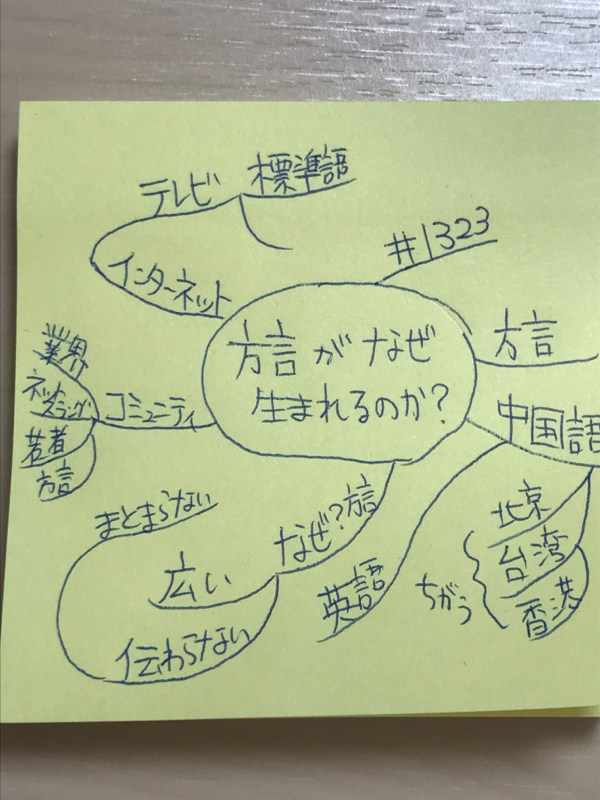 テレビ
標準語
インターネット
#1323
方言がなぜ
生まれるのか?
方言
中国語
北京
台湾
香港
ちがう
英語
なぜ?方言
広い
伝わらない
まとまらない
コミュニティ
業界
ネットスラング
若者
方言